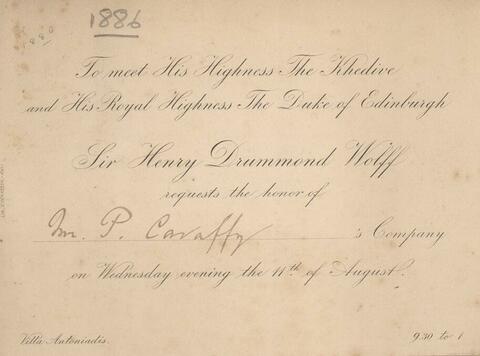 1886
To meet His Highness The Khedive
and His Royal Highness The Duke of Edinburgh
Sir Henry Drummond Wolff
requests the honor of
Mr. P. Cavaffy 's Company
on Wednesday evening the 11th of August.
Villa Antoniadis. 9.30 to 1